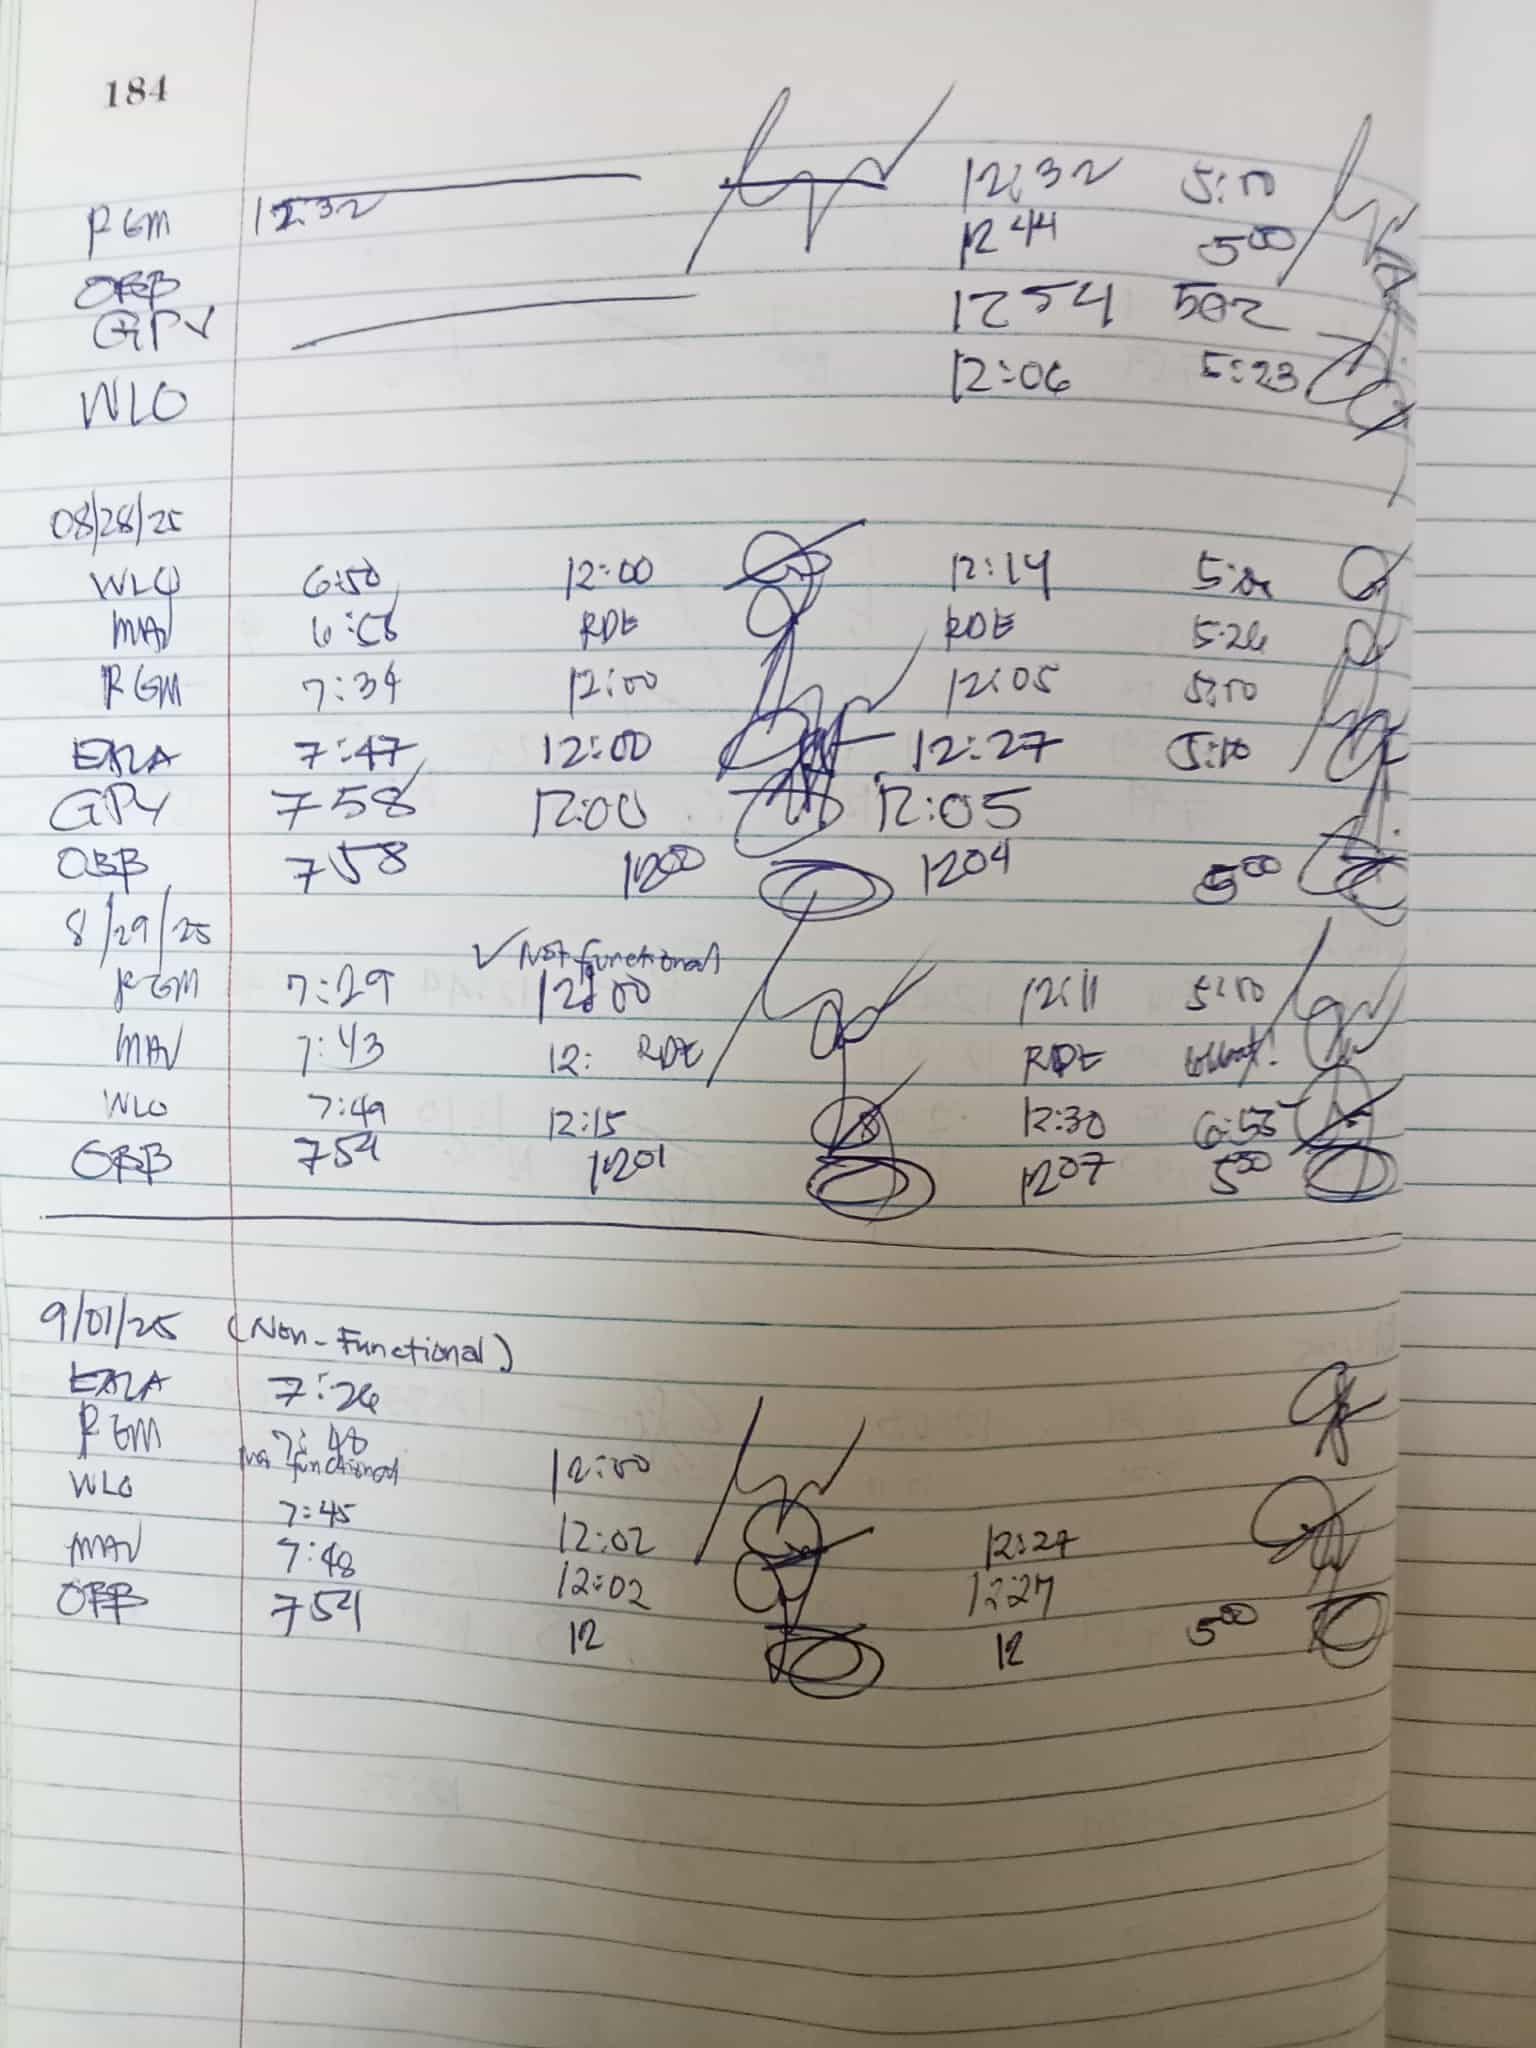 184
RGM 12:32 12:32 5:00
OBB 12 44 5 00
GPY 12 54 502
WLO 12:06 5:23
08/28/25
WLO 6:50 12:00 12:14
MAV RDE RDE 5:26
RGM 7:34 12:00 12:05 5:00
EALA 7:47 12:00 12:27 5:10
GPY 7 58 12:00 12:05
OBB 7 58 12 00 12 04 5 00
8/29/25
✓ Not functional
RGM 7:29 12:00 12:11 5:00
MAV 7:43 12: RDE RDE
WLO 7:49 12:15 12:30 6:55
OBB 7 54 12 01 12 07 5 00
9/01/25 (Non-Functional)
EALA 7:26
RGM 7:40 12:00
not functional
WLO 7:45 12:02 12:27
MAV 7:48 12:02 12:27
OBB 7 54 12 12 5 00